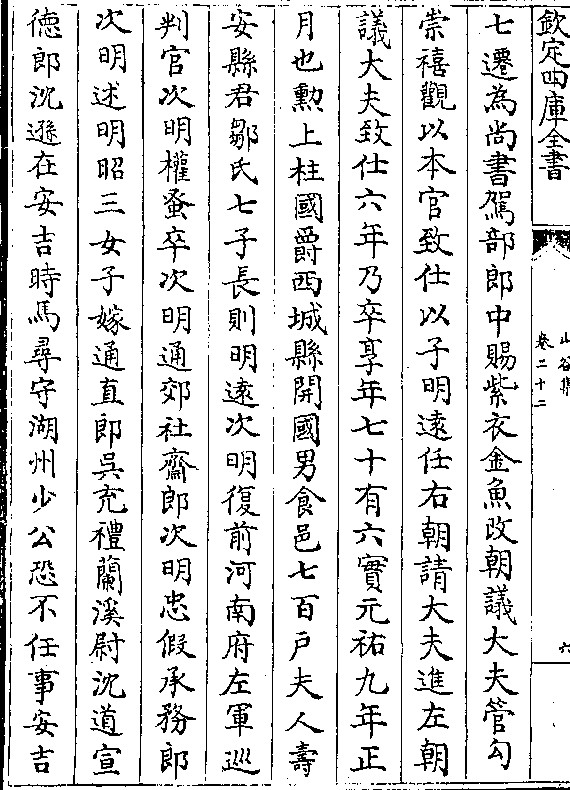 欽定四庫全書
山谷集
卷二十二
六
七遷為尚書駕部郎中賜紫衣金魚改朝議大夫管勾
崇禧觀以本官致仕以子明遠任右朝請大夫進左朝
議大夫致仕六年乃卒享年七十有六實元祐九年正
月也勲上柱國爵西城縣開國男食邑七百戶夫人壽
安縣君鄒氏七子長則明遠次明復前河南府左軍巡
判官次明權蚤卒次明通郊社齋郎次明忠假承務郎
次明述明昭三女子嫁通直郎吳充禮蘭溪尉沈道宣
徳郎沈遜在安吉時馬尋守湖州少公恐不任事安吉